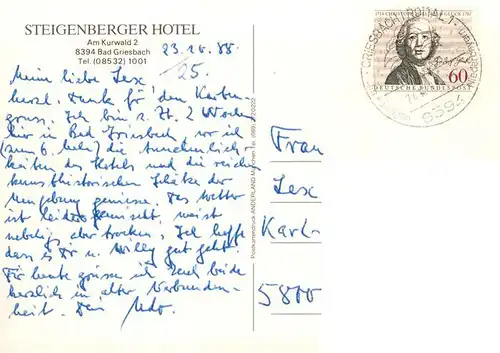 STEIGENBERGER HOTEL
Am Kurwald 2
8394 Bad Griesbach
Tel. (08532) 1001
23.10.88
25.
Meine liebe Lex
herzl. Dank für den Karten-
gruss. Ich bin z. Zt. 2 Wochen
hier in Bad Griesbach, wo ich
(zum 6. Mal) die Annehmlich-
keiten des Hotels und die reichen
kunsthistorischen Schätze der
Umgebung geniesse. Das Wetter
ist leider gemischt, meist
neblig aber trocken. Ich hoffe
dass es Dir u. Willy gut geht.
Für heute grüsse ich Euch beide
herzlich in alter Verbunden-
heit. Dein Udo.
Postkartendruck ANDERLAND München Tel. (089)
Frau
Lex
Karl-
5800
DEUTSCHE BUNDESPOST
60
GRIESBACH I. ROTTAL 1
8394